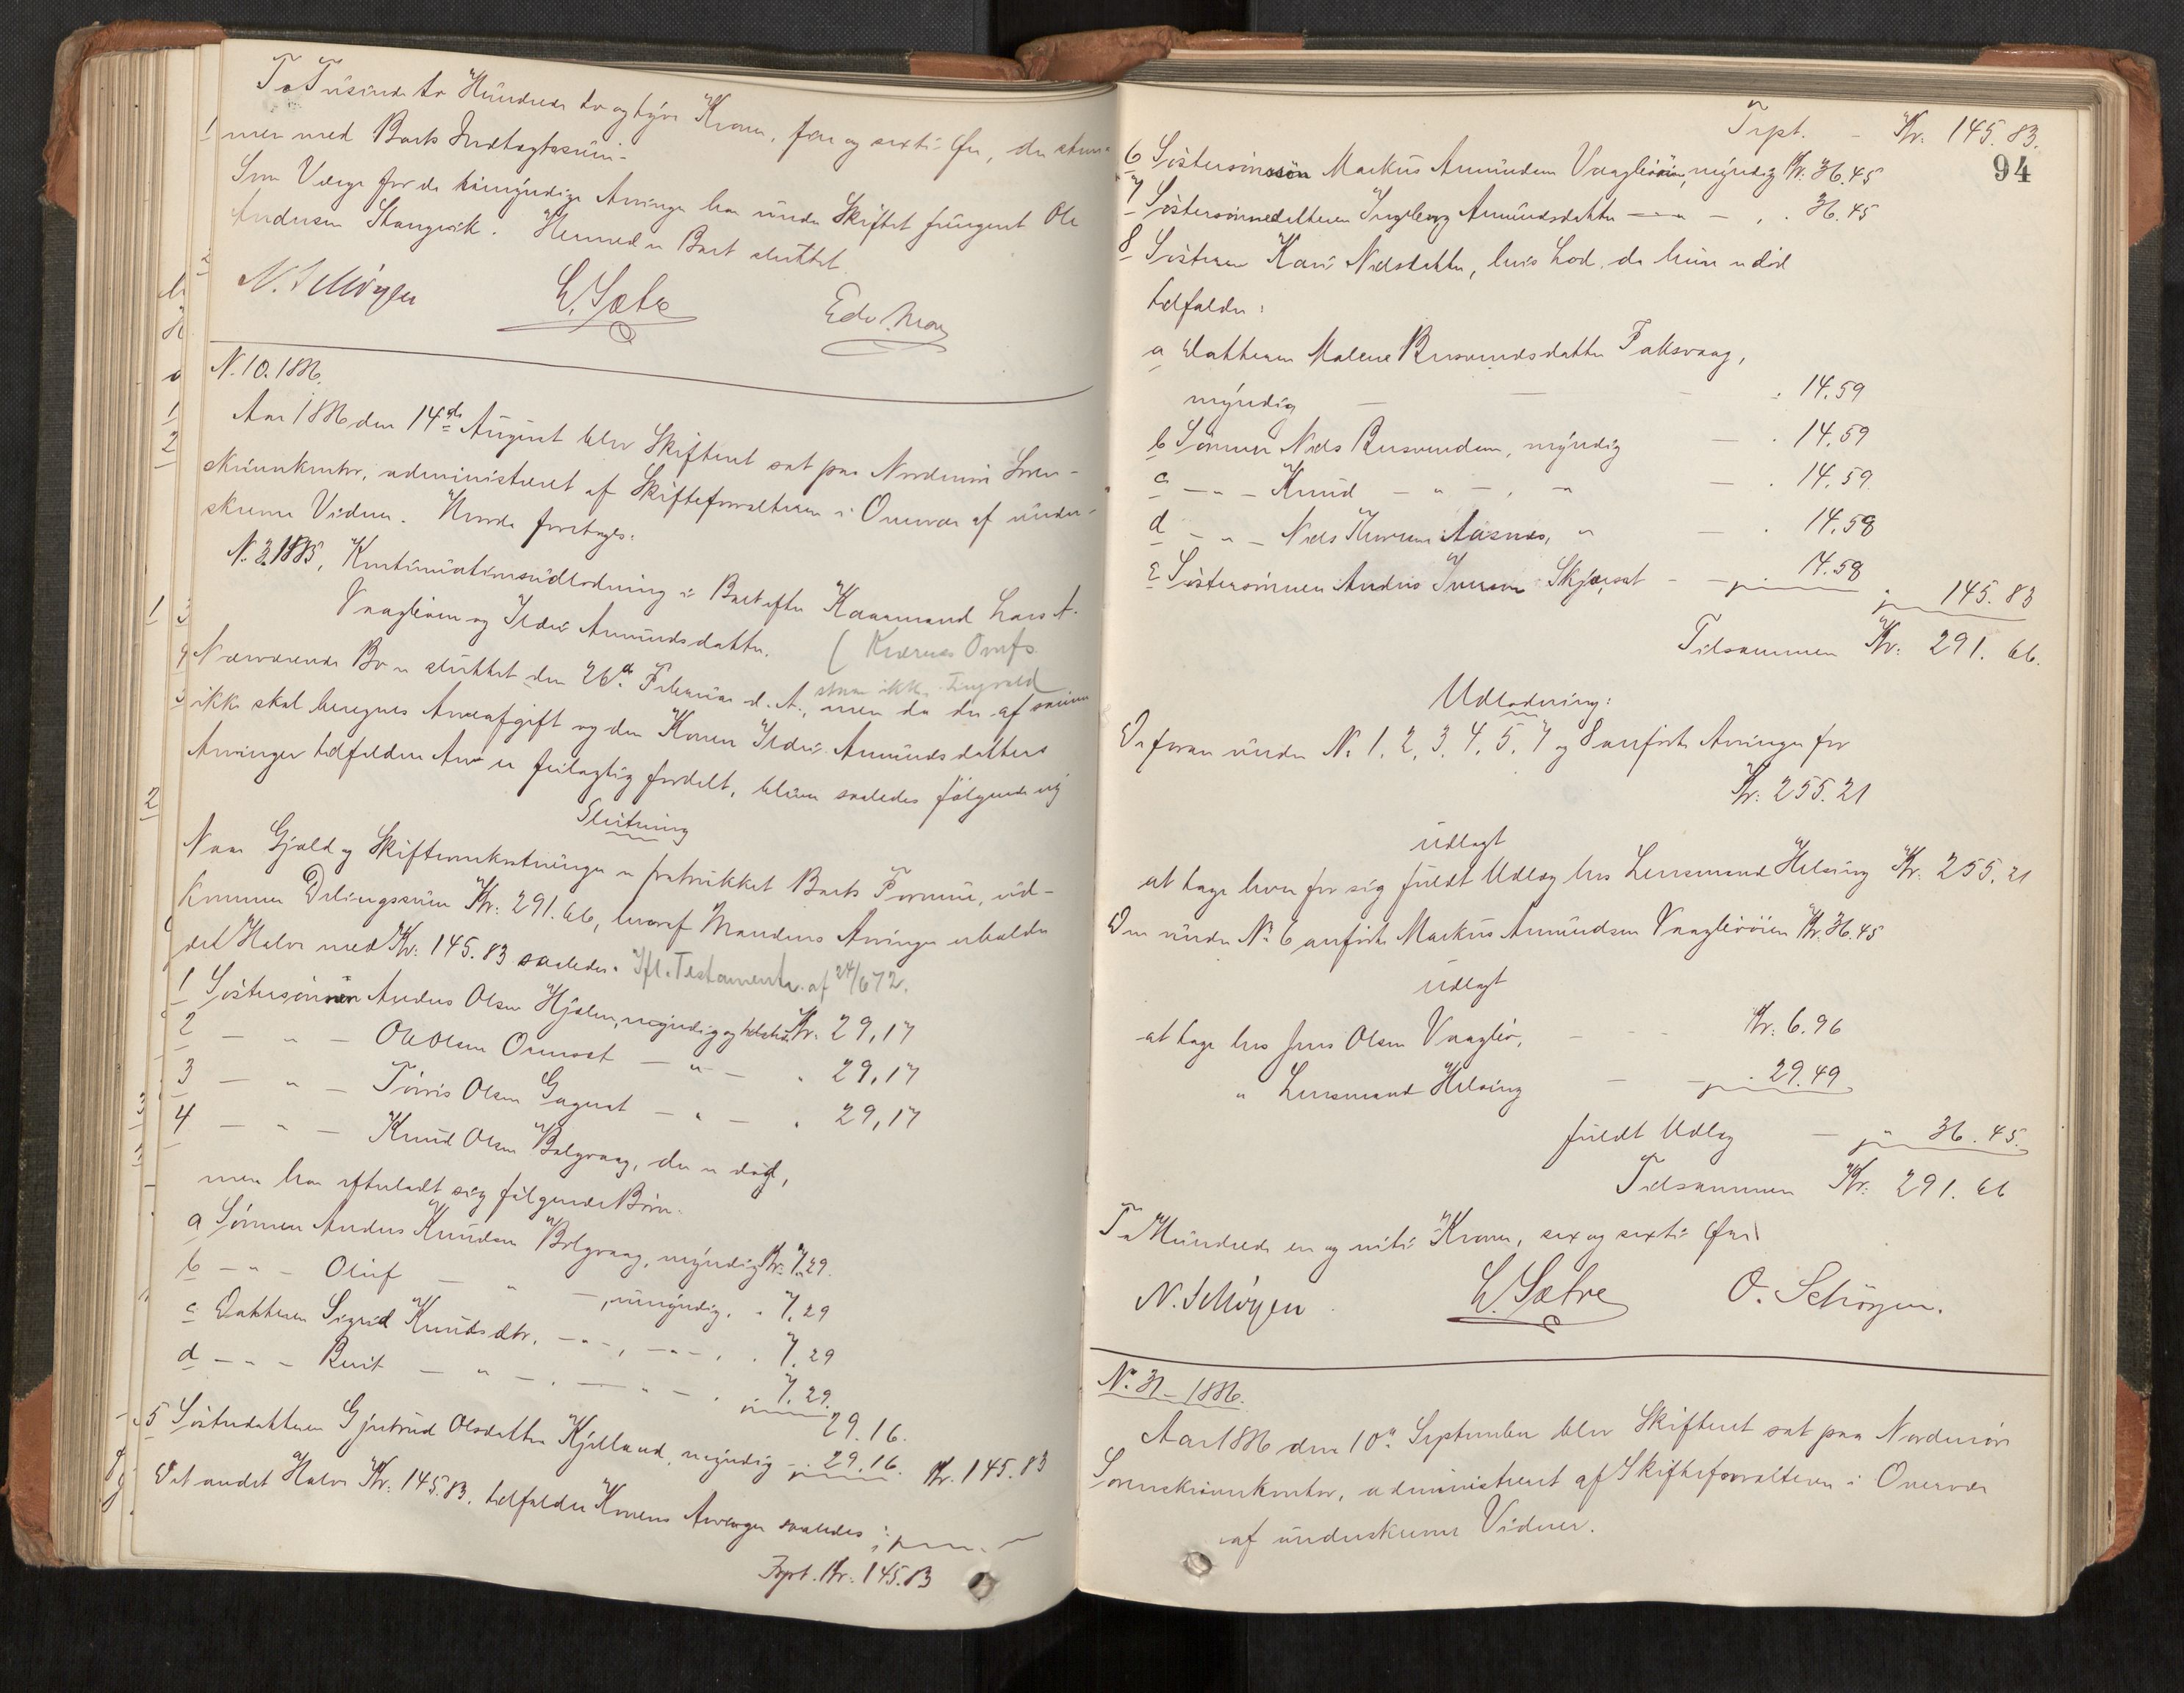 To Tusinde to Hundrede to og tyve Kroner, fem og sexti Øre, der stem-
mer med Boets Indtægtssum.
Som Værge for de umyndige Arvinger har under Skiftet fungeret Ole
Andersen Stangvik. Hermed er Boet sluttet.
N. Schøyen L. Sæter Edv.
N. 10. 1886.
Aar 1886 den 14de August blev Skifteret sat paa Nordmøre Soren-
skriverkontor, administreret af Skifteforvalteren i Overvær af under-
skrevne Vidner. Hvorda foretoges:
N. 3. 1885, Kontinuationsudlodning i Boet efter Kaarmand Lars A.
Vaagbøen og Ildri Amundsdatter. (Kværnes
Nærværende Bo er sluttet den 26de Februar d. A., men da der af samme
staar ikke Tingvold
ikke skal beregnes Arveafgift og den Konen Ildri Amundsdatters
Arvinger tilfaldne Arv er feilagtig fordelt, bliver saaledes følgende ny
Slutning
Naar Gjæld og Skifteomkostninger er fratrukket Boets Formue, ud-
kommer Delingssum Kr. 291.66, hvoraf Mandens Arvinger erholder
det Halve med Kr. 145.83 saaledes: Ifl. Testamente af 24/6 72.
1 Søstersønnen Anders Olsen Hjelen, myndig og tilstede Kr. 29,17
2 — " — Ole Olsen Ormset — " — . 29,17
3 — " — Tøris Olsen Gagnat — " — . 29,17
4 — " — Knud Olsen Bolgvaag, der er død,
men har efterladt sig følgende Børn:
a Sønnen Anders Knudsen Bolgvaag, myndig Kr. 7.29.
b — " — Oluf — " —, umyndig, . 7.29
c Datteren Sigrid Knudsdtr. — " —, — " — . 7.29
d — " — Berit — " — . — " — . 7.29.
29.16.
5 Søsterdatteren Gjertrud Olsdatter Kjelland, myndig — . 29.16. Kr. 145.83
Det andet Halve Kr. 145.83, tilfalder Konens Arvinger saaledes:
Trpt. Kr. 145.83
94
Trpt. - Kr. 145.83.
6 Søstersønnen Markus Amundsen Vaagbøien, myndig Kr. 36.45
7 Søstersønnedatteren Ingeborg Amundsdatter — " — . 36.45
8 Søsteren Kari Nilsdatter, hvis Lod, da hun er død
tilfalder:
a Datteren Malene Brusvendsdatter Faksvaag,
myndig — . 14.59
b Sønnen Nils Brusvendsen, myndig — . 14.59
c — " — Knud — " — , " — . 14.59.
d — " — Nils Aasnes, " — . 14.58
e Søstersønnen Anders Iversen Skjørset — . 14.58
. 145.83
Tilsammen Kr. 291.66.
Udlodning:
De foran under No 1, 2, 3, 4, 5, 7 og 8 anførte Arvinger for
Kr. 255.21
udlagt
at tage hver for sig fuldt Udlæg hos Lensmand Helsing Kr. 255.21
Den under No 6 anførte Markus Amundsen Vaagbøien Kr. 36.45
udlagt
at tage hos Jens Olsen Vaagbø, — Kr. 6.96
" Lensmand Helsing — . 29.49
fuldt Udlæg — " 36.45.
Tilsammen Kr. 291.66
To Hundrede en og niti Kroner, sex og sexti Øre.
N. Schøyen. L. Sætre O. Schøyen.
No. 31 - 1886.
Aar 1886 den 10de September blev Skifteret sat paa Nordmøre
Sorenskriverkontor, administreret af Skifteforvalteren i Overvær
af underskrevne Vidner.